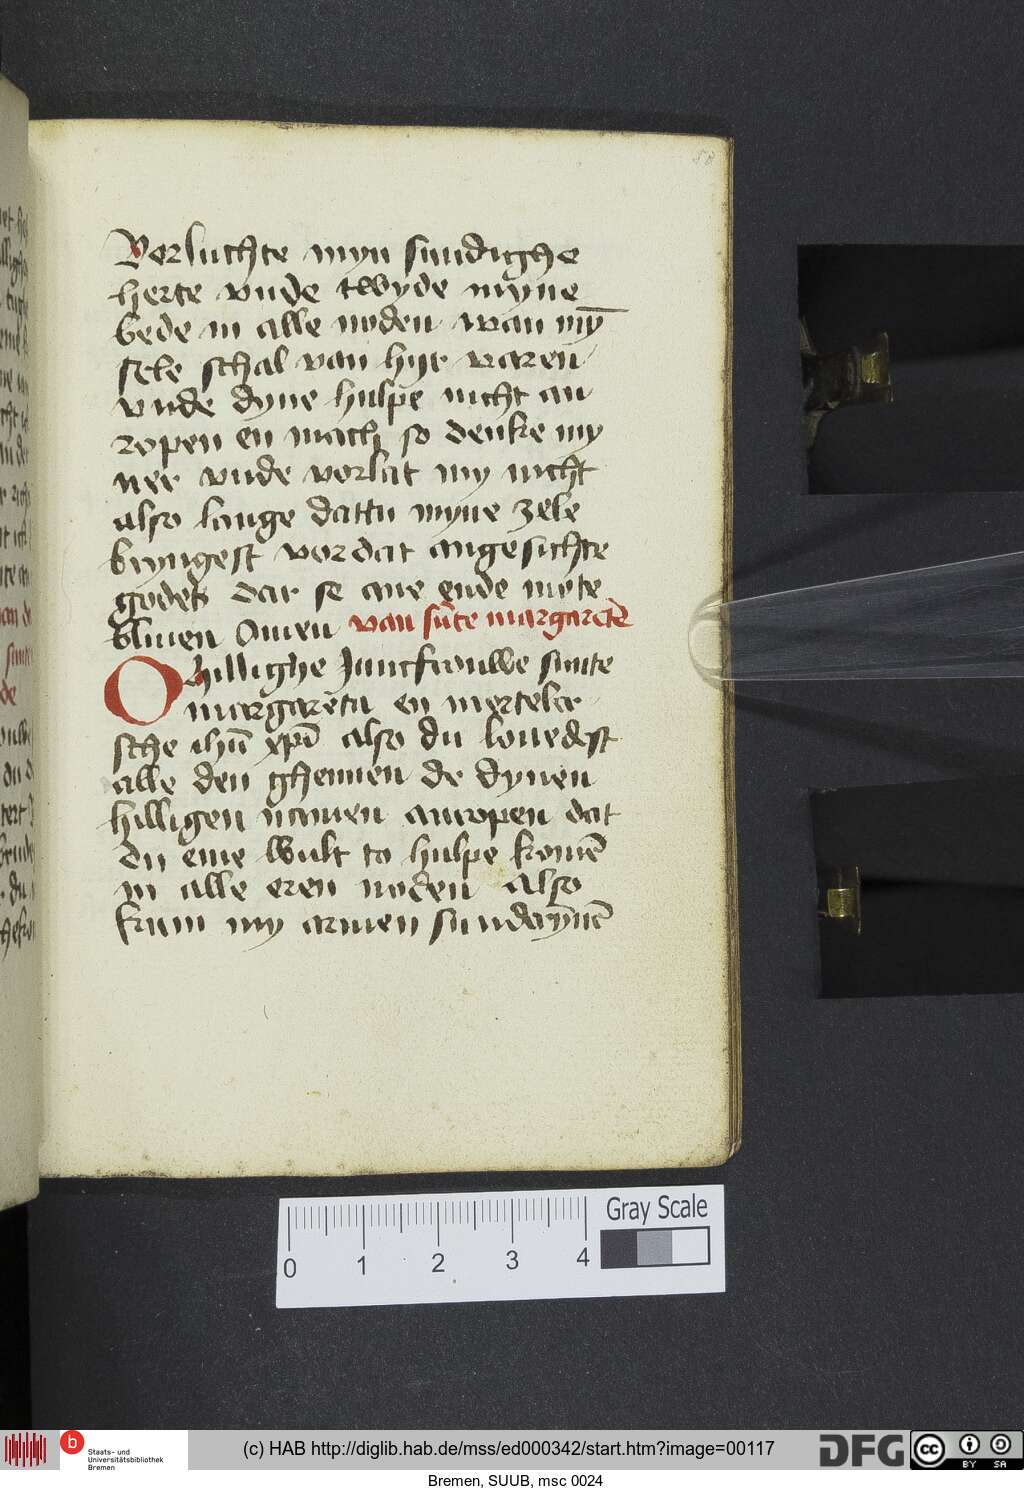 58
Vorluchte myn sundighe
herte vnde twyde myne
bede in alle noden wan my̅
sele schal van hyr varen
vnde dyne hulpe nicht an
ropen en mach so denke my
ner vnde vorlat my nicht
also lange dattu myne zele
bryngest vor dat angesichte
godes dar se ane ende myte
bliuen Amen van su̅te margarete̅
O hillighe Juncfrouwe sunte
margareta en merteler
sche ihu̅ xpi̅ also du louedest
alle den ghennen de dynen
hilligen namen anropen dat
du eme wult to hulpe kome̅
in alle eren noden also
kum my armen sunderynne̅
0 1 2 3 4
Gray Scale
b Staats- und
Universitätsbibliothek
Bremen
(c) HAB http://diglib.hab.de/mss/ed000342/start.htm?image=00117
DFG
cc BY SA
Bremen, SUUB, msc 0024